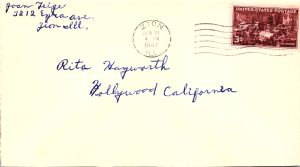 Joan Feige
3212 Ezra ave.
Zion Ill.
ZION
1947
ILL.
UNITED STATES POSTAGE
3¢
Rita Hayworth
Hollywood California